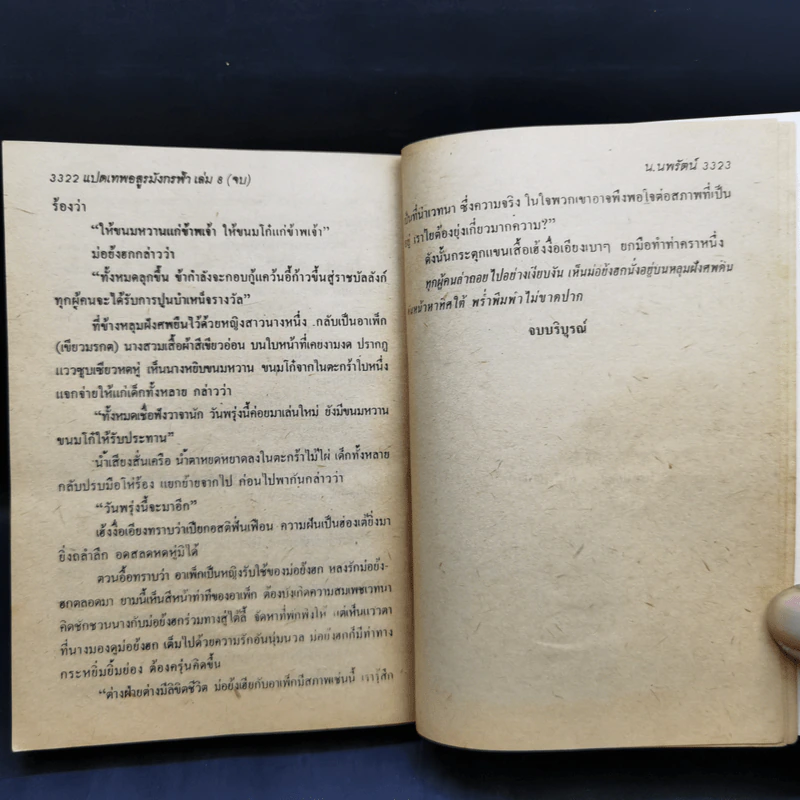 3322 แปดเทพอสูรมังกรฟ้า เล่ม 8 (จบ)
ร้องว่า
“ให้ขนมหวานแก่ข้าพเจ้า ให้ขนมโก๋แก่ข้าพเจ้า”
ม่อย้งฮกกล่าวว่า
“ทั้งหมดลุกขึ้น ข้ากำลังจะกอบกู้แคว้นอี้ก้าวขึ้นสู่ราชบัลลังก์
ทุกผู้คนจะได้รับการปูนบำเหน็จรางวัล”
ที่ข้างหลุมฝังศพยืนไว้ด้วยหญิงสาวนางหนึ่ง กลับเป็นอาเพ็ก
(เขียวมรกต) นางสวมเสื้อผ้าสีเขียวอ่อน บนใบหน้าที่เคยงามงด ปรากฏ
แววซูบเซียวหดหู่ เห็นนางหยิบขนมหวาน ขนมโก๋จากในตะกร้าใบหนึ่ง
แจกจ่ายให้แก่เด็กทั้งหลาย กล่าวว่า
“ทั้งหมดเชื่อฟังวาจานัก วันพรุ่งนี้ค่อยมาเล่นใหม่ ยังมีขนมหวาน
ขนมโก๋ให้รับประทาน”
น้ำเสียงสั่นเครือ น้ำตาหยดหยาดลงในตะกร้าไม้ไผ่ เด็กทั้งหลาย
กลับปรบมือโห่ร้อง แยกย้ายจากไป ก่อนไปพากันกล่าวว่า
“วันพรุ่งนี้จะมาอีก”
เฮ้งงื่อเอียงทราบว่าเปียกอสติฟั่นเฟือน ความฝันเป็นฮ่องเต้ยิ่งมา
ยิ่งถลำลึก อดสลดหดหู่มิได้
ตวนอื้อทราบว่า อาเพ็กเป็นหญิงรับใช้ของม่อย้งฮก หลงรักม่อย้ง-
ฮกตลอดมา ยามนี้เห็นสีหน้าท่าทีของอาเพ็ก ต้องบังเกิดความสมเพชเวทนา
คิดชักชวนนางกับม่อย้งฮกร่วมทางสู่ใต้ลี้ จัดหาที่พักพิงให้ แต่เห็นแววตา
ที่นางมองดูม่อย้งฮก เต็มไปด้วยความรักอันนุ่มนวล ม่อย้งฮกก็มีท่าทาง
กระหยิ่มยิ้มย่อง ต้องครุ่นคิดขึ้น
“ต่างฝ่ายต่างมีลิขิตชีวิต ม่อย้งเฮียกับอาเพ็กมีสภาพเช่นนี้ เรารู้สึก
น.นพรัตน์ 3323
เป็นที่น่าเวทนา ซึ่งความจริง ในใจพวกเขาอาจพึงพอใจต่อสภาพที่เป็น
อยู่ เราไยต้องยุ่งเกี่ยวมากความ?”
ดังนั้นกระตุกแขนเสื้อเฮ้งงื่อเอียงเบาๆ ยกมือทำท่าคราหนึ่ง
ทุกผู้คนล่าถอยไปอย่างเงียบงัน เห็นม่อย้งฮกนั่งอยู่บนหลุมฝังศพดิน
หันหน้าหาทิศใต้ พร่ำพึมพำไม่ขาดปาก
จบบริบูรณ์